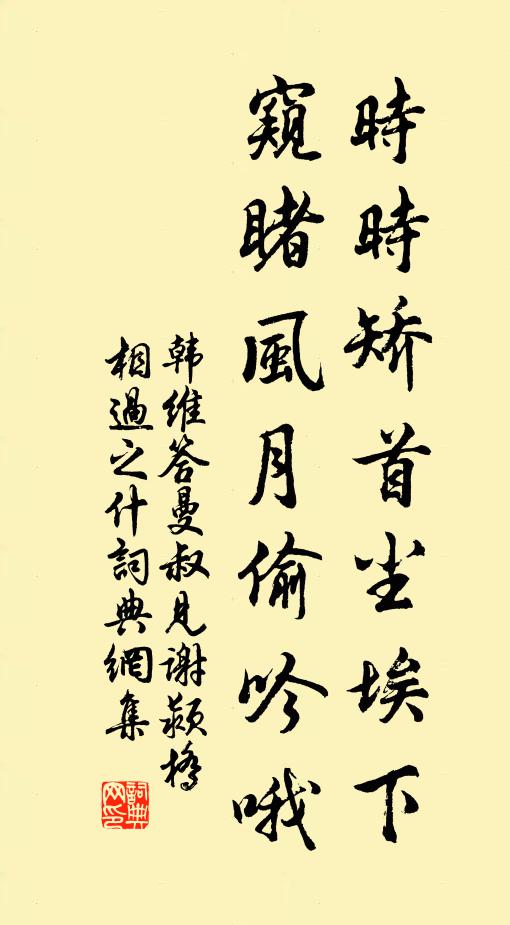 時時矫首尘埃下
窺睹風月偷吟哦
韩维答曼叔见谢颍橋
相過之什詞典網集
詞典
网印